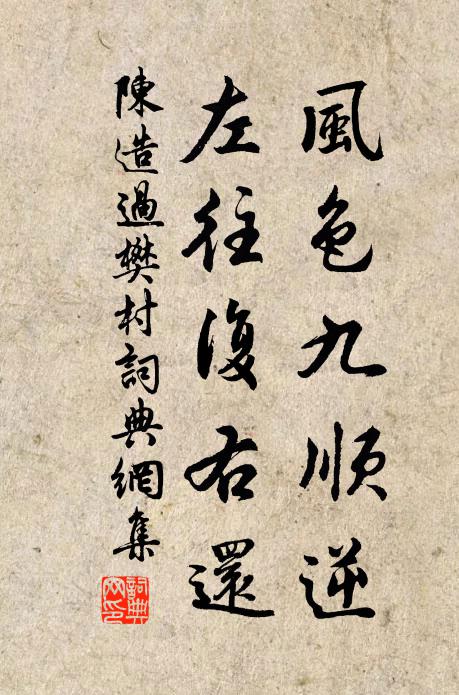 風色九順逆
左往復右還
陳造過樊村詞典網集
詞典网印